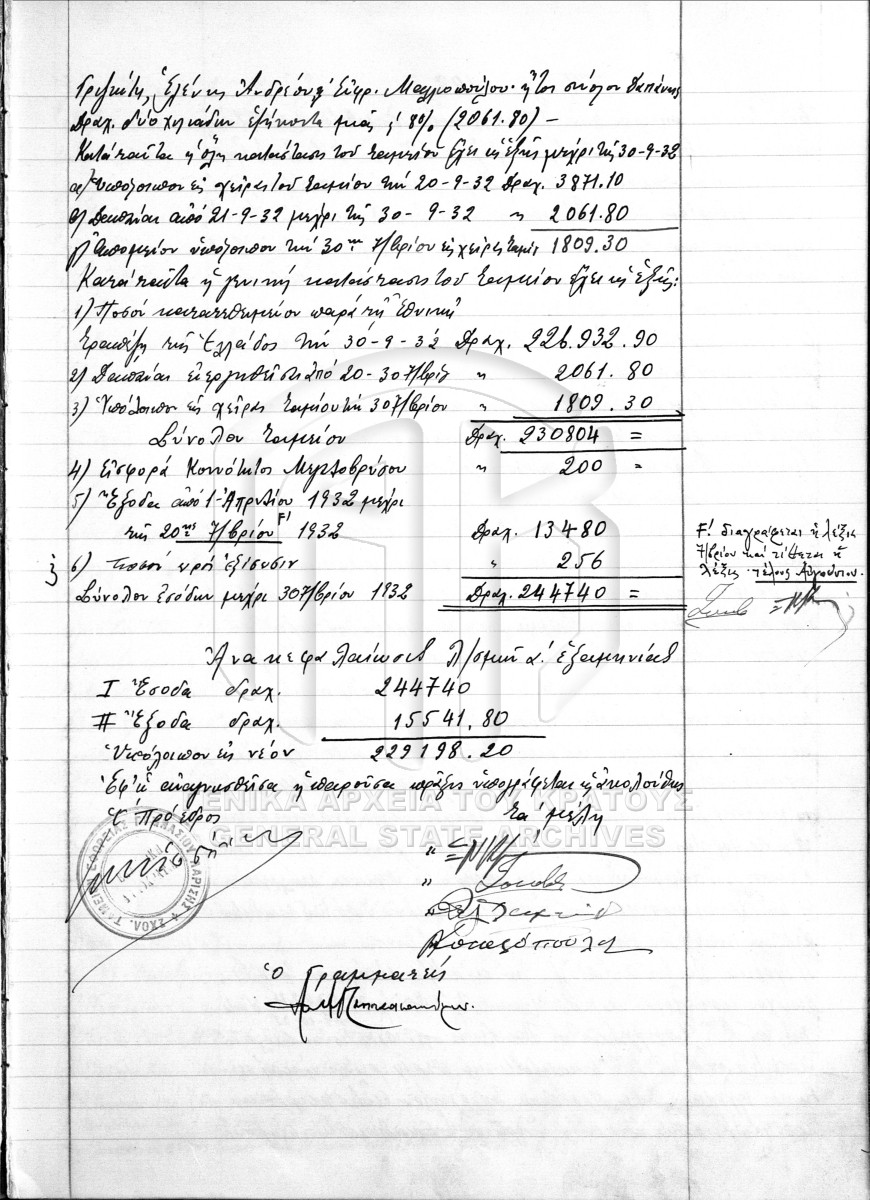 Ἑλένης Ἀνδρέου & Εὐφρ. ἤτοι σύνολον δαπάνης
Δραχ. δύο χιλιάδων ἑξήκοντα μιᾶς & 80% (2061.80) –
Κατὰ ταῦτα ἡ ὅλη κατάστασις τοῦ ταμείου ἔχει ὡς ἑξῆς μέχρι τῆς 30-9-32
α) Ὑπόλοιπον εἰς χεῖρας τοῦ ταμείου τὴν 20-9-32 Δραχ. 3871.10
β) Δαπάναι ἀπὸ 21-9-32 μέχρι τῆς 30-9-32 " 2061.80
γ) Ἀπομεῖον ὑπόλοιπον τὴν 30ην 7/βρίου εἰς χεῖρας ταμίου 1809.30
Κατὰ ταῦτα ἡ γενικὴ κατάστασις τοῦ ταμείου ἔχει ὡς ἑξῆς:
1) Ποσὸν κατατεθειμένον παρὰ τῇ Ἐθνικῇ
Τραπέζῃ τῆς Ἑλλάδος τὴν 30-9-32 Δραχ. 226.932.90
2) Δαπάναι ἐνεργηθεῖσαι ἀπὸ 20-30 7/βρίου " 2061.80
3) Ὑπόλοιπον εἰς χεῖρας ταμίου τὴν 30 7/βρίου " 1809.30
Σύνολον ταμείου Δραχ. 230804 =
4) Εἰσφορὰ Κοινότητος " 200 =
5) Ἔξοδα ἀπὸ 1 Ἀπριλίου 1932 μέχρι
τῆς 20ῆς 7/βρίου F! 1932 Δραχ. 13480
6) Ποσὸν πρὸς ἐξίσωσιν " 256
Σύνολον Ἐσόδων μέχρι 30 7/βρίου 1932 Δραχ. 244740 =
F! διαγράφεται ἡ λέξις
7/βρίου καὶ τίθεται ἡ
λέξις τέλους Αὐγούστου.
Ἀνακεφαλαίωσις λ/σμοῦ α΄. ἑξαμηνίας
I Ἔσοδα δραχ. 244740
II Ἔξοδα δραχ. 15541.80
Ὑπόλοιπον εἰς νέον 229198.20
Ἐφ' ᾧ ἀναγνωσθεῖσα ἡ παροῦσα πρᾶξις ὑπογράφεται ὡς ἀκολούθως
Ὁ Πρόεδρος Τὰ μέλη
ΓΕΝΙΚΑ ΑΡΧΕΙΑ ΤΟΥ ΚΡΑΤΟΥΣ
GENERAL STATE ARCHIVES
Ὁ Γραμματεύς